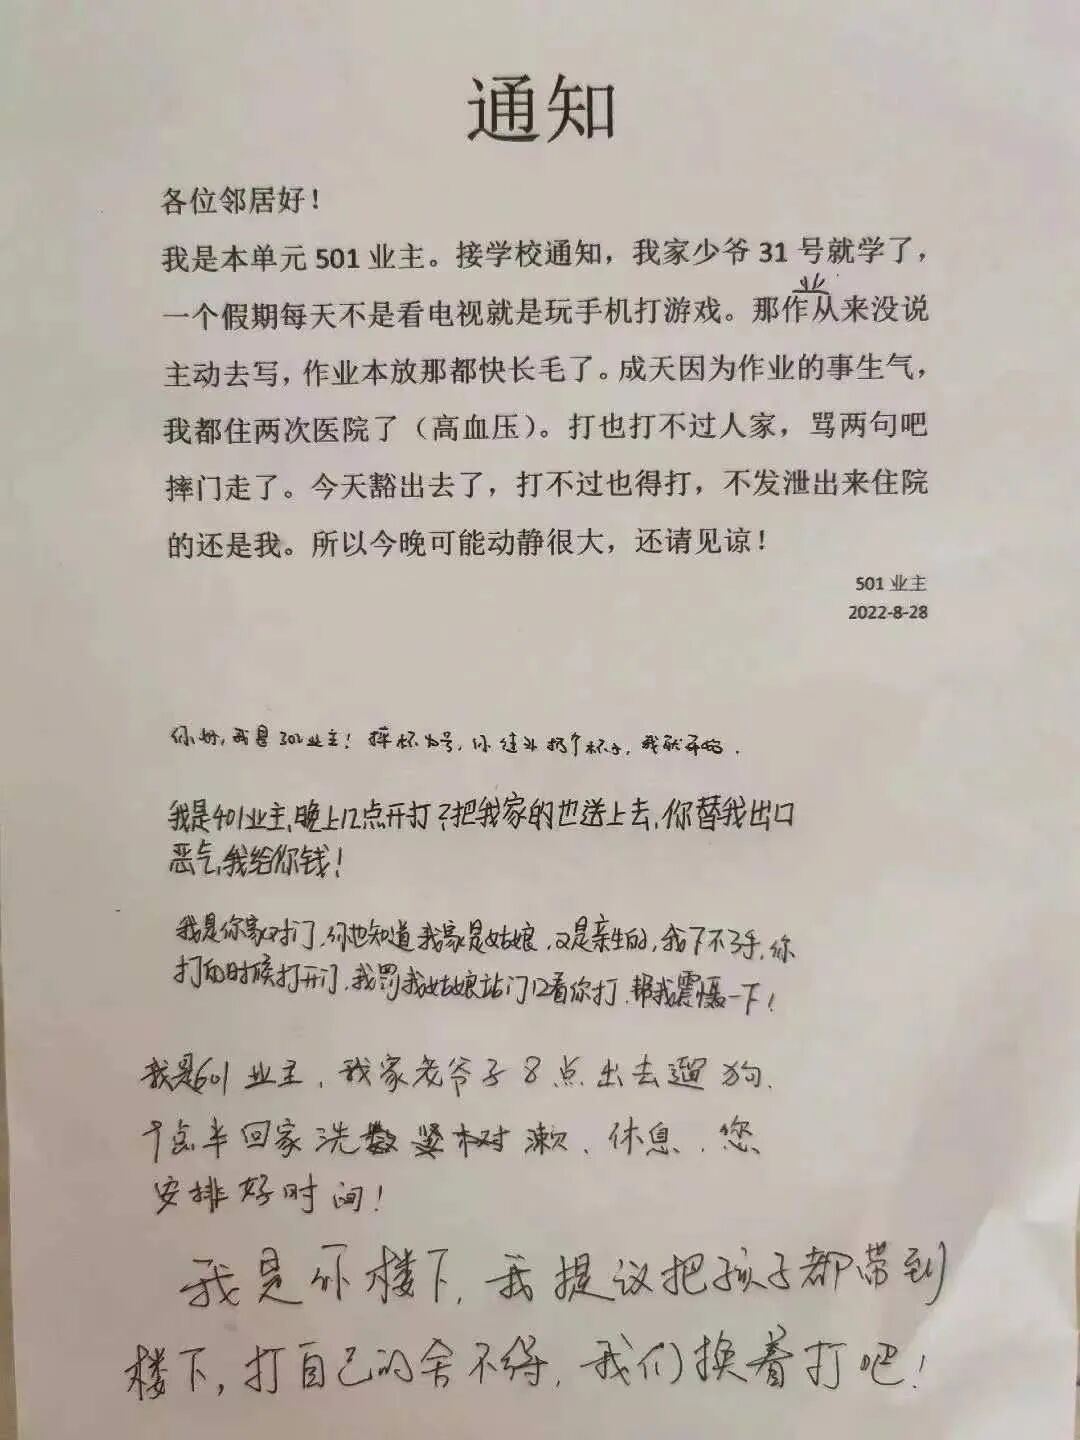 通知
各位邻居好！
我是本单元 501 业主。接学校通知，我家少爷 31 号就学了，
一个假期每天不是看电视就是玩手机打游戏。那作业从来没说
主动去写，作业本放那都快长毛了。成天因为作业的事生气，
我都住两次医院了（高血压）。打也打不过人家，骂两句吧
摔门走了。今天豁出去了，打不过也得打，不发泄出来住院
的还是我。所以今晚可能动静很大，还请见谅！
501 业主
2022-8-28
你好，我是302业主！摔杯为号，你往头扔个杯子，我就开始．
我是401业主，晚上12点开打？把我家的也送上去，你替我出口
恶气，我给你钱！
我是你家对门，你也知道我家是姑娘，又是亲生的，我下不了手，你
打的时候打开门，我罚我姑娘站门口看你打，帮我震慑一下！
我是601业主，我家老爷子8点出去遛狗．
十点半回家洗漱、休息．您
安排好时间！
我是你楼下，我提议把孩子都带到
楼下，打自己的舍不得，我们换着打吧！